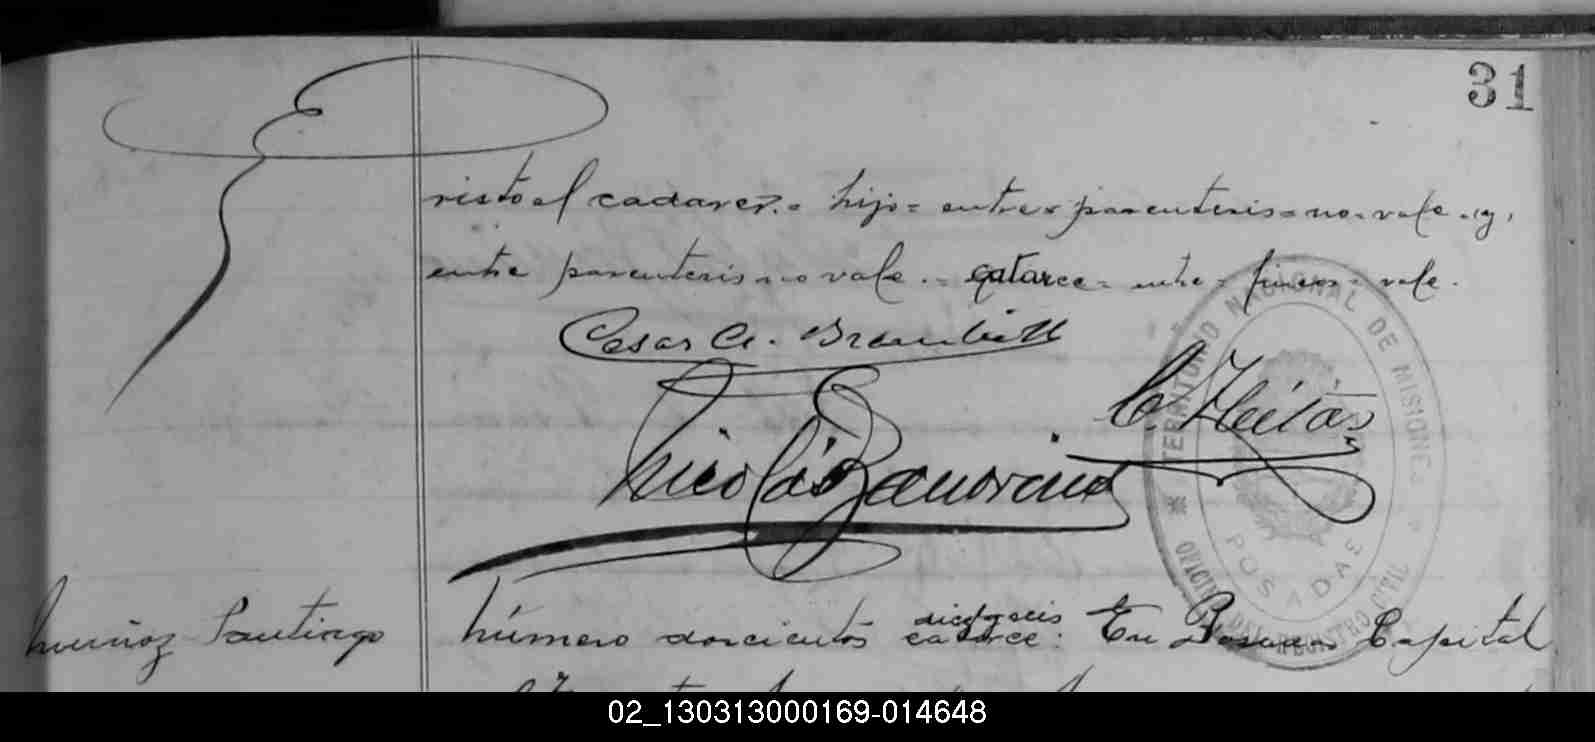 31
visto el cadaver.= hijo= entre= parentesis= no= vale.=y,
entre parentesis= no vale.= catorce= entre= lineas= vale.
Cesar A.
C. Fleitas
Nicolás Zamorano
TERRITORIO NACIONAL DE MISIONES
OFICINA DEL REGISTRO CIVIL
POSADAS
Muñoz Santiago
dieciseis
Número doscientos catorce: En Posadas Capital
02_130313000169-014648